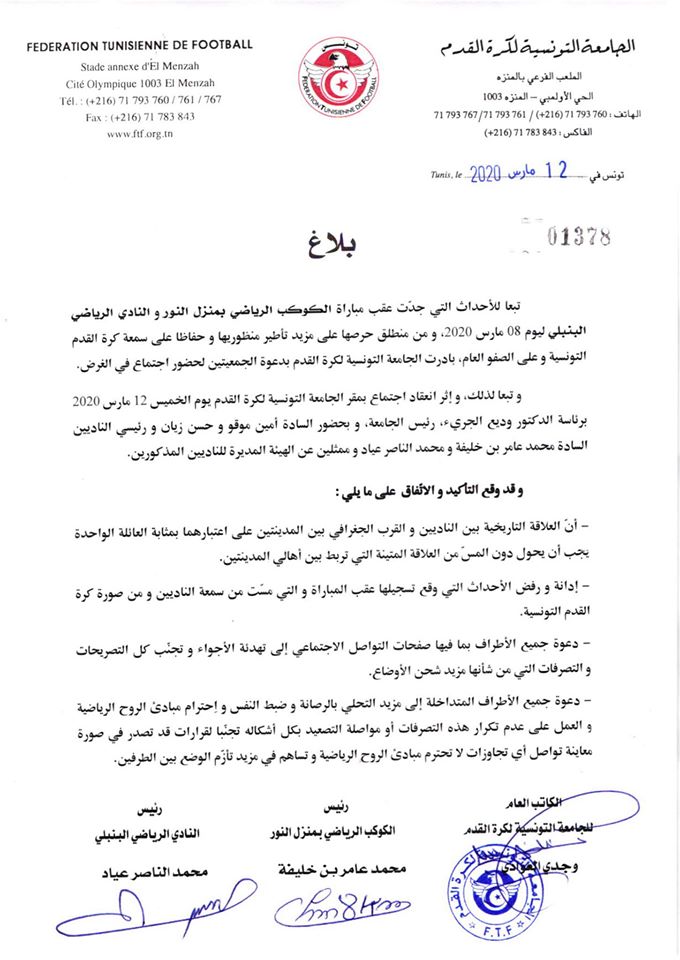 FEDERATION TUNISIENNE DE FOOTBALL
Stade annexe d'El Menzah
Cité Olympique 1003 El Menzah
Tél. : (+216) 71 793 760 / 761 / 767
Fax : (+216) 71 783 843
www.ftf.org.tn
تونس
FEDERATION TUNISIENNE DE FOOTBALL
الجامعة التونسية لكرة القدم
الملعب الفرعي بالمنزه
الحي الأولمبي – المنزه 1003
الهاتف: 760 793 71 (216+) / 761 793 71/ 767 793 71
الفاكس: 843 783 71 (216+)
تونس في 12 مارس 2020 Tunis, le
01378
بلاغ
تبعا للأحداث التي جدّت عقب مباراة الكوكب الرياضي بمنزل النور و النادي الرياضي
البنبلي ليوم 08 مارس 2020، و من منطلق حرصها على مزيد تأطير منظوريها و حفاظا على سمعة كرة القدم
التونسية و على الصفو العام، بادرت الجامعة التونسية لكرة القدم بدعوة الجمعيتين لحضور اجتماع في الغرض.
و تبعا لذلك، و إثر انعقاد اجتماع بمقر الجامعة التونسية لكرة القدم يوم الخميس 12 مارس 2020
برئاسة الدكتور وديع الجريء، رئيس الجامعة، و بحضور السادة أمين موقو و حسن زيان و رئيسي الناديين
السادة محمد عامر بن خليفة و محمد الناصر عياد و ممثلين عن الهيئة المديرة للناديين المذكورين.
و قد وقع التأكيد و الاتّفاق على ما يلي :
– أنّ العلاقة التاريخية بين الناديين و القرب الجغرافي بين المدينتين على اعتبارهما بمثابة العائلة الواحدة
يجب أن يحول دون المسّ من العلاقة المتينة التي تربط بين أهالي المدينتين.
– إدانة و رفض الأحداث التي وقع تسجيلها عقب المباراة و التي مسّت من سمعة الناديين و من صورة كرة
القدم التونسية.
– دعوة جميع الأطراف بما فيها صفحات التواصل الاجتماعي إلى تهدئة الأجواء و تجنّب كل التصريحات
و التصرفات التي من شأنها مزيد شحن الأوضاع.
– دعوة جميع الأطراف المتداخلة إلى مزيد التحلي بالرصانة و ضبط النفس و إحترام مبادئ الروح الرياضية
و العمل على عدم تكرار هذه التصرفات أو مواصلة التصعيد بكل أشكاله تجنّبا لقرارات قد تصدر في صورة
معاينة تواصل أي تجاوزات لا تحترم مبادئ الروح الرياضية و تساهم في مزيد تأزّم الوضع بين الطرفين.
الكاتب العام
للجامعة التونسية لكرة القدم
وجدي العوادي
رئيس
الكوكب الرياضي بمنزل النور
محمد عامر بن خليفة
رئيس
النادي الرياضي البنبلي
محمد الناصر عياد
الجامعة التونسية لكرة القدم
F.T.F